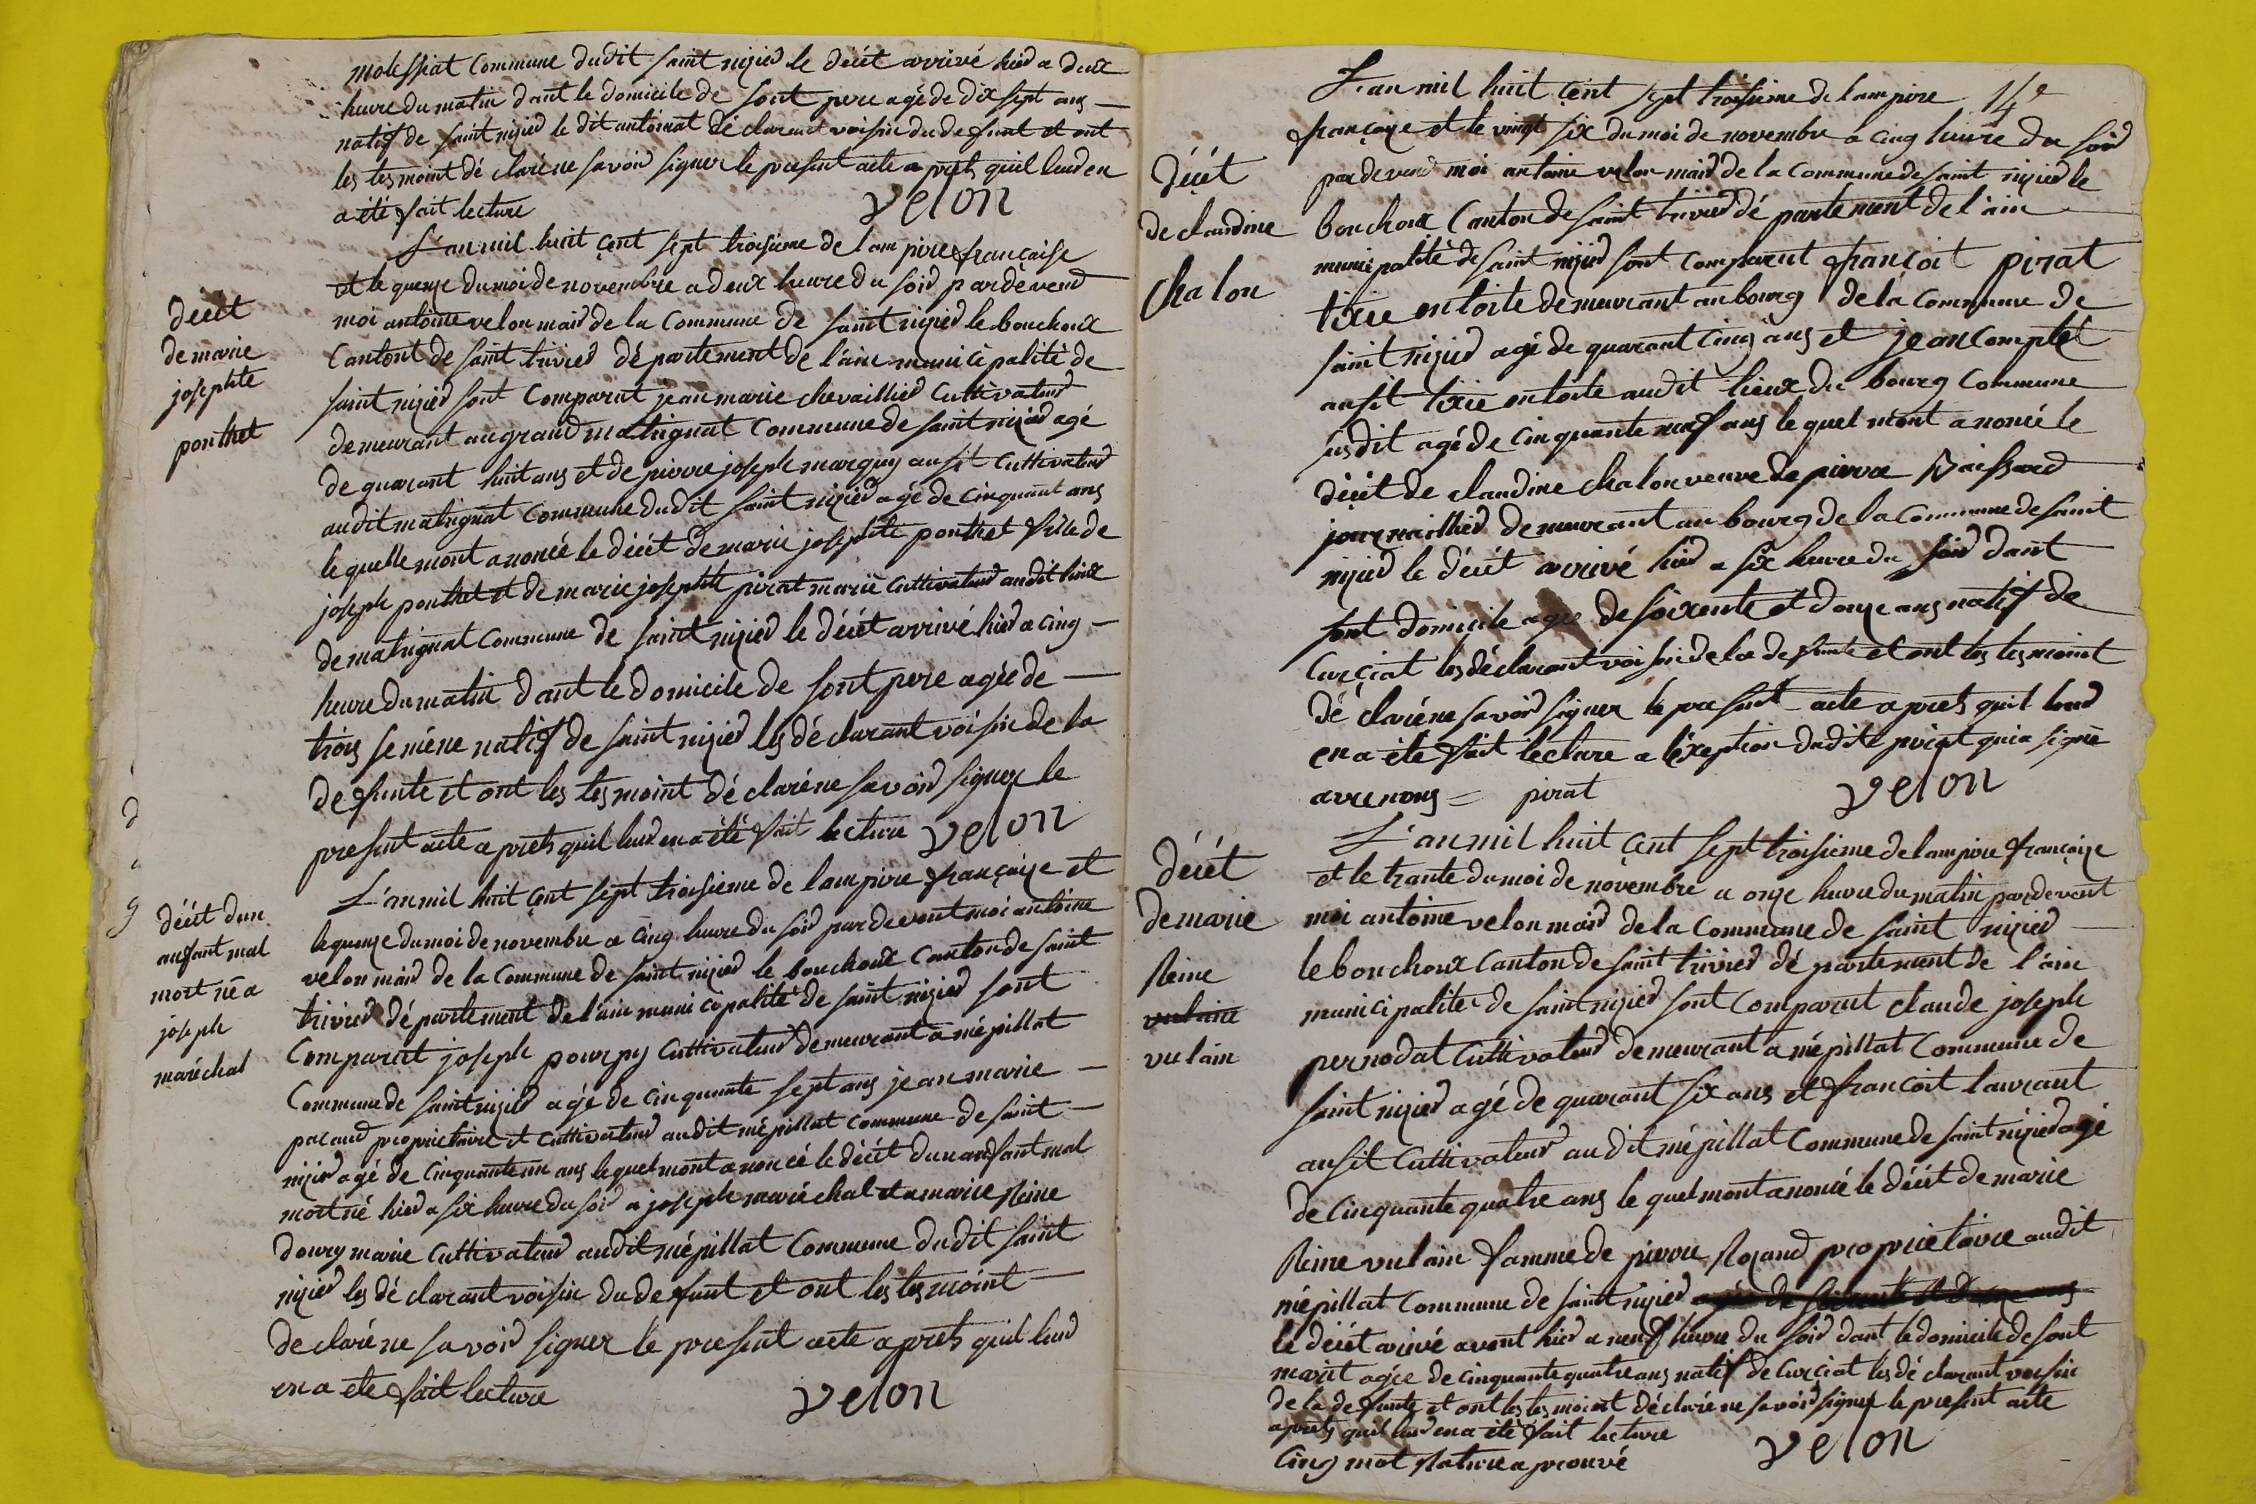 molessiat Commune dudit saint nizied le décèt arrivé hied a deux
heure du matin dant le domicile de sont pere agé de dix sept ans
natif de saint nizied le dit antoinat déclarant voisin du defunt et ont
les tesmoint dé claré ne savoid signer le presint acte a prèts quil lud en
a été fait lecture velon
L'an mil huit çent sept troisieme de lam pire française
et le quenze du moi de novembre a deux heure du soid par de vend
décèt
de marie
josephte
ponthet
moi antoine velon maid de la Commune de saint nizied le bouchoux
Cantont de saint trivied dé partement de l'ain muni ci palité de
saint nizied sont Comparut jean marie chevaillied Cultivateud
demeurant au grand matrignat Commune de saint nizied agé
de quarant huit ans et de pierre joseph marguy ausit Cultivateud
audit matrignat Commune dudit saint nizied agé de cinquant ans
le quelle mont anoncé le décèt de marie josephte ponthet fille de
joseph ponthet et de marie josephte pirat marié Cultivateud audit lieux
de matrignat Commune de saint nizied le décèt arrivé hied a cinq
heure du matin dant le domicile de sont pere agée de
trois seméne natif de saint nizied les déclarant voisin de la
defunte et ont les tesmoint dé claré ne savoid signer le
presint acte a prèts quil lud en a été fait lecture velon
L'an mil huit çent sept troisieme de lampire françaize et
le quenze du moi de novembre a cinq heure du soid par devent moi antoine
décèt dun
anfant mal
mort né a
joseph
maréchal
velon maid de la Commune de saint nizied le bouchoux Canton de saint
trivied dé partement de l'ain muni cipalité de saint nizied sont
Comparut joseph pourpy Cultivateud demeurant a mépillat
Commune de saint nizied agé de cinquante sept ans jean marie
pacaud proprietaire et Cultivateud audit mépillat Commune de saint
nizied agé de cinquante un ans le quel mont anoncé le décèt dun anfant mal
mort né hied a six heure du soid a joseph maréchal et a marie Reine
doury marie Cultivateud audit mépillat Commune dudit saint
nizied les dé clarant voisin du defunt et ont les tesmoint
de claré ne savoid signer le presint acte a prèts quil lud
en a été fait lecture velon
14e
L'an mil huit çent sept troisieme de lampire
françaize et le vingt six du moi de novembre a cinq heure du soid
décèt
de claudine
chalon
par de vend moi antoine velon maid de la Commune de saint nizied le
bouchoux Canton de saint trivied dé partement de l'ain
municipalité de saint nizied sont Comparut françoit pirat
tixie en toile demeurant au bourg de la Commune de
saint nizied agé de quarant cinq ans et jean Complet
ausit tixie en toile audit lieux du bourg Commune
susdit agé de cinquante neuf ans le quel mont anoncé le
décèt de claudine chalon veuve de pierre
journaillied demeurant au bourg de la Commune de saint
nizied le décèt arrivé hied a six heure du soid dant
sont domicile agée de soixente et douze ans natif de
Curçiat les déclarant voisin de la defunte et ont les tesmoint
dé claré ne savoid signer le presint acte a prèts quil lud
en a été fait lecture a lexeption dudite pirat qui a signé
avec nous = pirat velon
L'an mil huit çent sept troisieme de lampire françaize
et le trante du moi de novembre a onze heure du matin par devent
décèt
de marie
Reine
vulain
vulain
moi antoine velon maid de la Commune de saint nizied
le bouchoux Canton de saint trivied dé partement de l'ain
municipalité de saint nizied sont Comparut claude joseph
pernodat Cultivateud demeurant a mépillat Commune de
saint nizied agé de quarant six ans et françoit laurant
ausit Cultivateud audit mépillat Commune de saint nizied agé
de cinquante quatre ans le quel mont anoncé le décèt de marie
Reine vulain famme de pierre Rozand proprietaire audit
mépillat Commune de saint nizied agée de soixente et douze ans
le décèt arrivé avent hied a neuf heure du soid dant le domicile de sont
marit agée de cinquante quatre ans natif de Curçiat les dé clarant voisin
de la defunte et ont les tesmoint dé claré ne savoid signer le presint acte
a prèts quil lud en a été fait lecture velon
Cinq mot Rature aprouvé